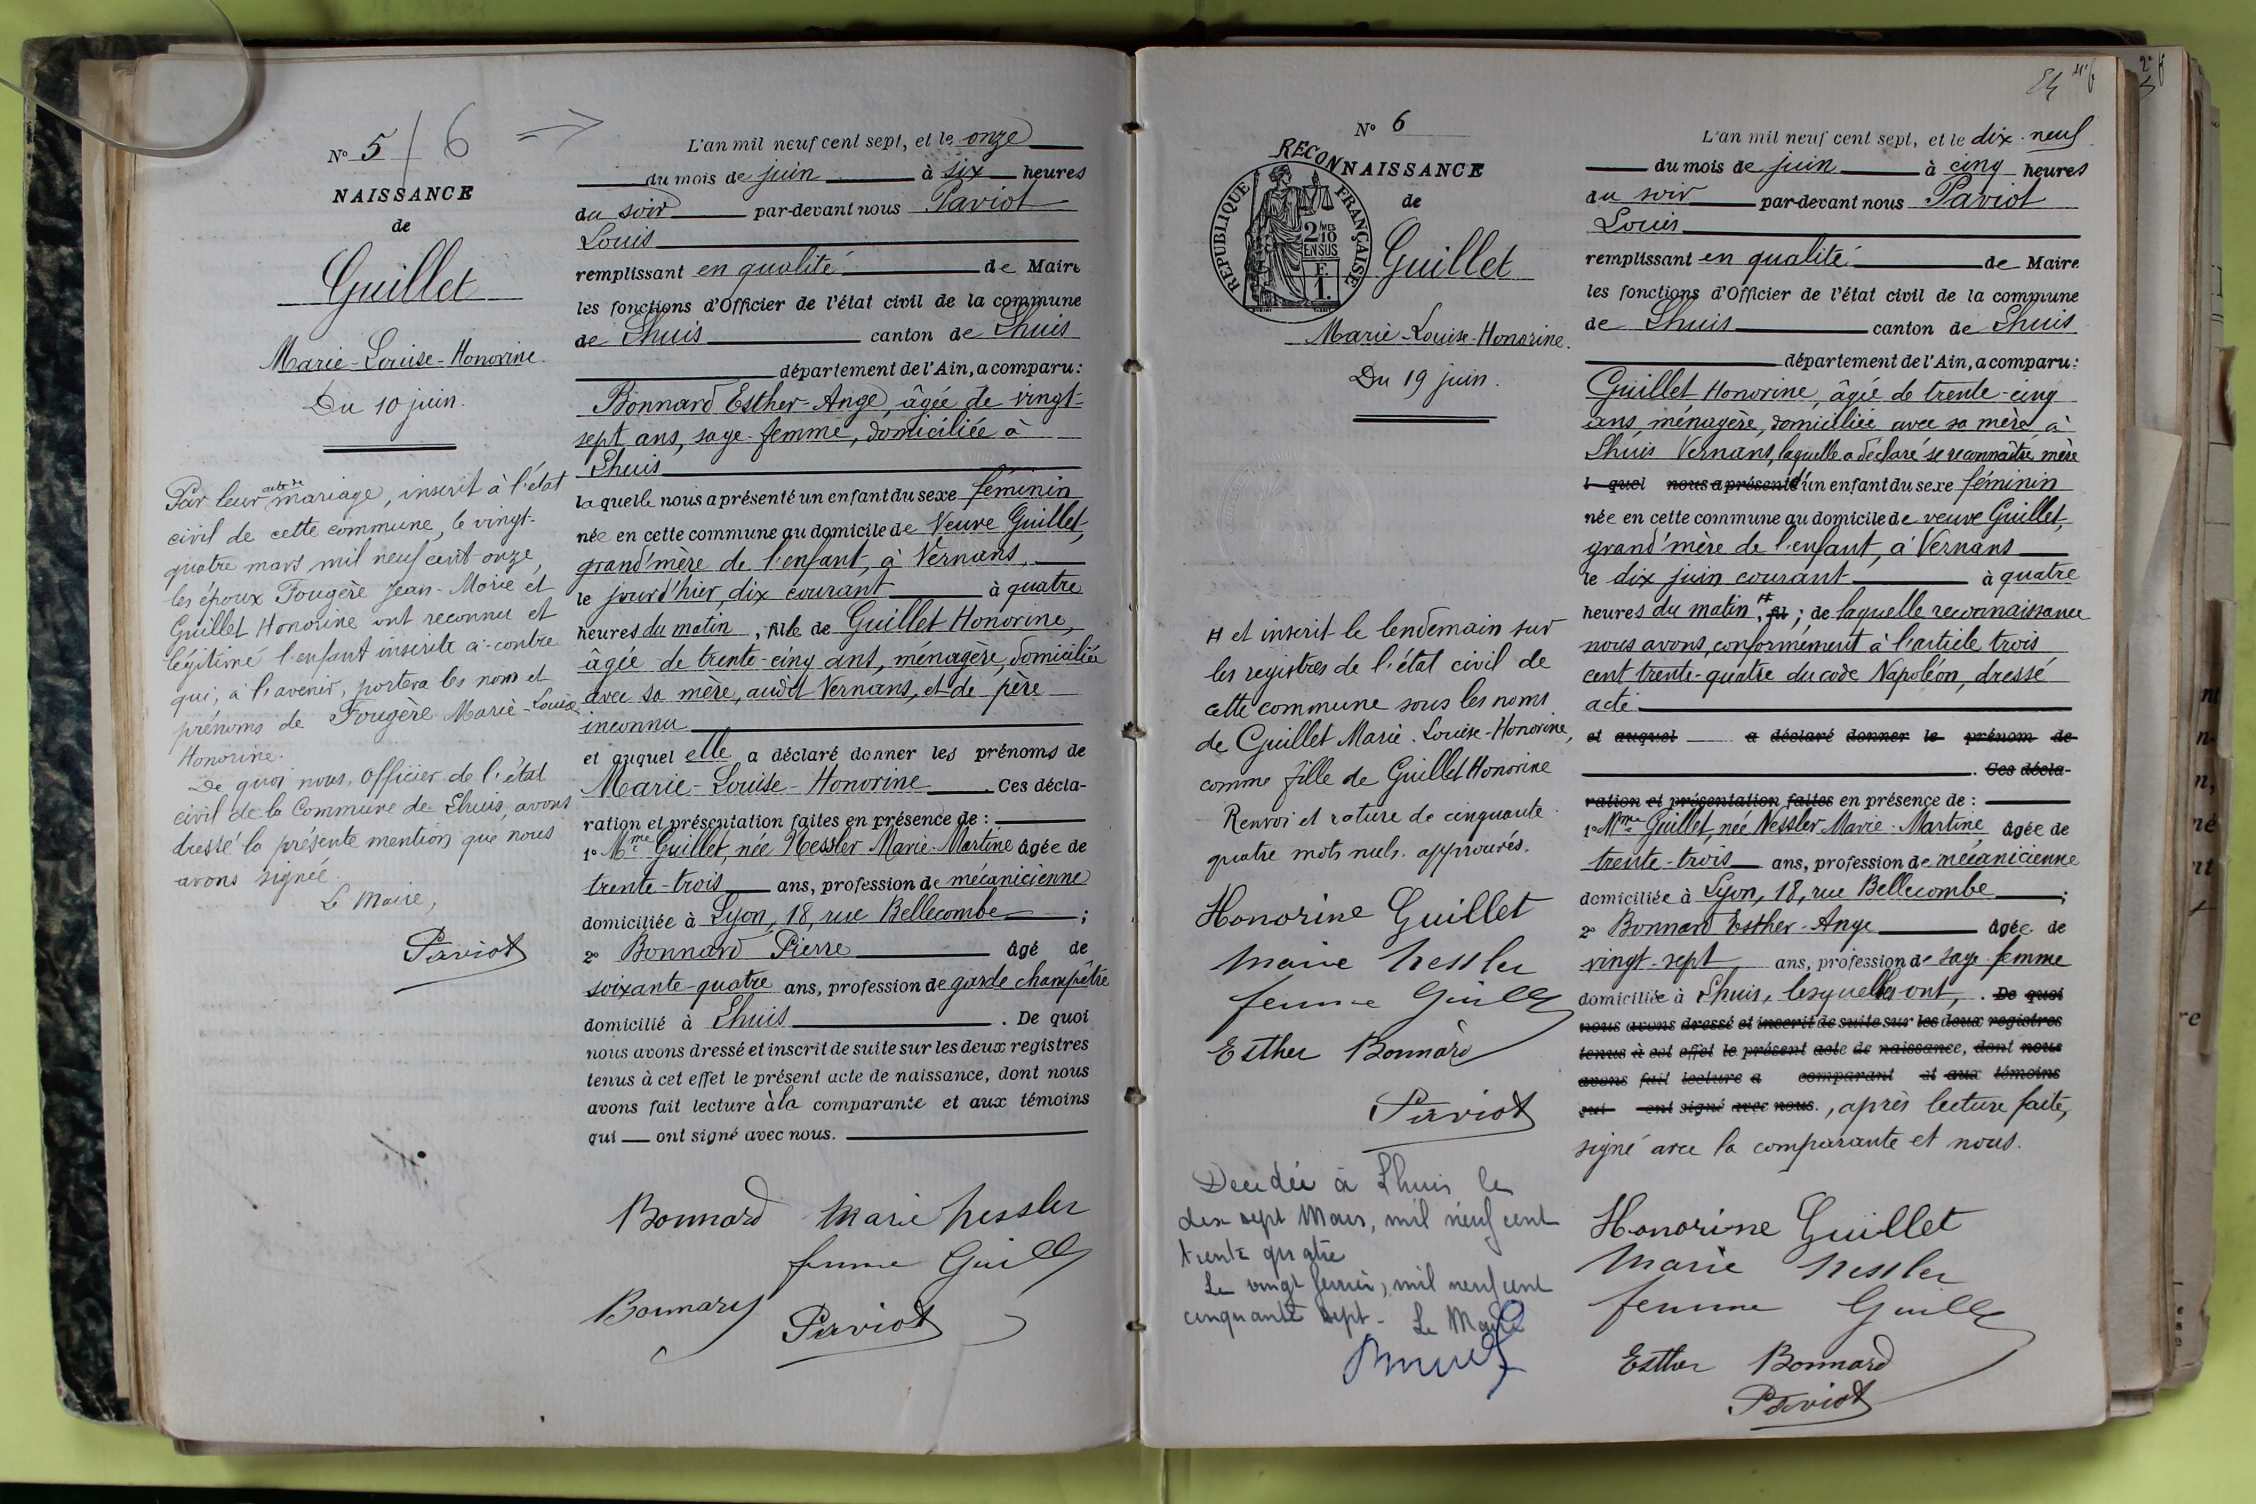 N° 5 / 6
NAISSANCE
de
Guillet
Marie-Louise-Honorine.
Du 10 juin.
Par leur acte de mariage, inscrit à l'état
civil de cette commune, le vingt-
quatre mars mil neuf cent onze,
les époux Fougère Jean-Marie et
Guillet Honorine ont reconnu et
légitimé l'enfant inscrite ci-contre
qui, à l'avenir, portera les nom et
prénoms de Fougère Marie-Louise
Honorine.
De quoi nous, Officier de l'état
civil de la Commune de Lhuis, avons
dressé la présente mention que nous
avons signée.
Le Maire,
Paviot
L'an mil neuf cent sept, et le onze
du mois de juin à six heures
du soir par-devant nous Paviot
Louis
remplissant en qualité de Maire
les fonctions d'Officier de l'état civil de la commune
de Lhuis canton de Lhuis
département de l'Ain, a comparu:
Bonnard Esther-Ange, âgée de vingt-
sept ans, sage-femme, domiciliée à
Lhuis
laquelle nous a présenté un enfant du sexe féminin
née en cette commune au domicile de Veuve Guillet,
grand'mère de l'enfant, à Vernans,
le jourd'hier, dix courant à quatre
heures du matin, fille de Guillet Honorine,
âgée de trente-cinq ans, ménagère, domiciliée
avec sa mère, audit Vernans, et de père
inconnu
et auquel elle a déclaré donner les prénoms de
Marie-Louise-Honorine. Ces décla-
ration et présentation faites en présence de :
1° Mme Guillet, née Nessler Marie-Martine âgée de
trente-trois ans, profession de mécanicienne
domiciliée à Lyon, 18, rue Bellecombe ;
2° Bonnard Pierre âgé de
soixante-quatre ans, profession de garde champêtre
domicilié à Lhuis. De quoi
nous avons dressé et inscrit de suite sur les deux registres
tenus à cet effet le présent acte de naissance, dont nous
avons fait lecture à la comparante et aux témoins
qui ont signé avec nous.
Bonnard Marie Nessler
femme Guillet
Bonnard Paviot
N° 6
RECONNAISSANCE
REPUBLIQUE FRANÇAISE
2 MES
10
EN SUS
de
Guillet
Marie-Louise-Honorine.
Du 19 juin.
# et inscrit le lendemain sur
les registres de l'état civil de
cette commune sous les noms
de Guillet Marie-Louise-Honorine,
comme fille de Guillet Honorine
Renvoi et rature de cinquante-
quatre mots nuls approuvés.
Honorine Guillet
Marie Nessler
femme Guillet
Esther Bonnard
Paviot
Decédée à Lhuis le
dix sept Mars, mil neuf cent
trente quatre
Le vingt fevrier, mil neuf cent
cinquante sept - Le Maire
L'an mil neuf cent sept, et le dix-neuf
du mois de juin à cinq heures
du soir par-devant nous Paviot
Louis
remplissant en qualité de Maire
les fonctions d'Officier de l'état civil de la commune
de Lhuis canton de Lhuis
département de l'Ain, a comparu:
Guillet Honorine, âgée de trente-cinq
ans, ménagère, domiciliée avec sa mère à
Lhuis Vernans, laquelle a déclaré se reconnaître mère
l quel nous a présenté d'un enfant du sexe féminin
née en cette commune au domicile de veuve Guillet,
grand'mère de l'enfant, à Vernans
le dix juin courant à quatre
heures du matin #, fil ; de laquelle reconnaissance
nous avons, conformément à l'article trois
cent trente-quatre du code Napoléon, dressé
acte
et auquel a déclaré donner le prénom de
. Ces décla-
ration et présentation faites en présence de :
1° Mme Guillet, née Nessler Marie-Martine âgée de
trente-trois ans, profession de mécanicienne
domiciliée à Lyon, 18, rue Bellecombe ;
2° Bonnard Esther-Ange âgée de
vingt-sept ans, profession de sage-femme
domiciliée à Lhuis, lesquelles ont, . De quoi
nous avons dressé et inscrit de suite sur les deux registres
tenus à cet effet le présent acte de naissance, dont nous
avons fait lecture a comparant et aux témoins
qui ont signé avec nous. , après lecture faite,
signé avec la comparante et nous.
Honorine Guillet
Marie Nessler
femme Guillet
Esther Bonnard
Paviot